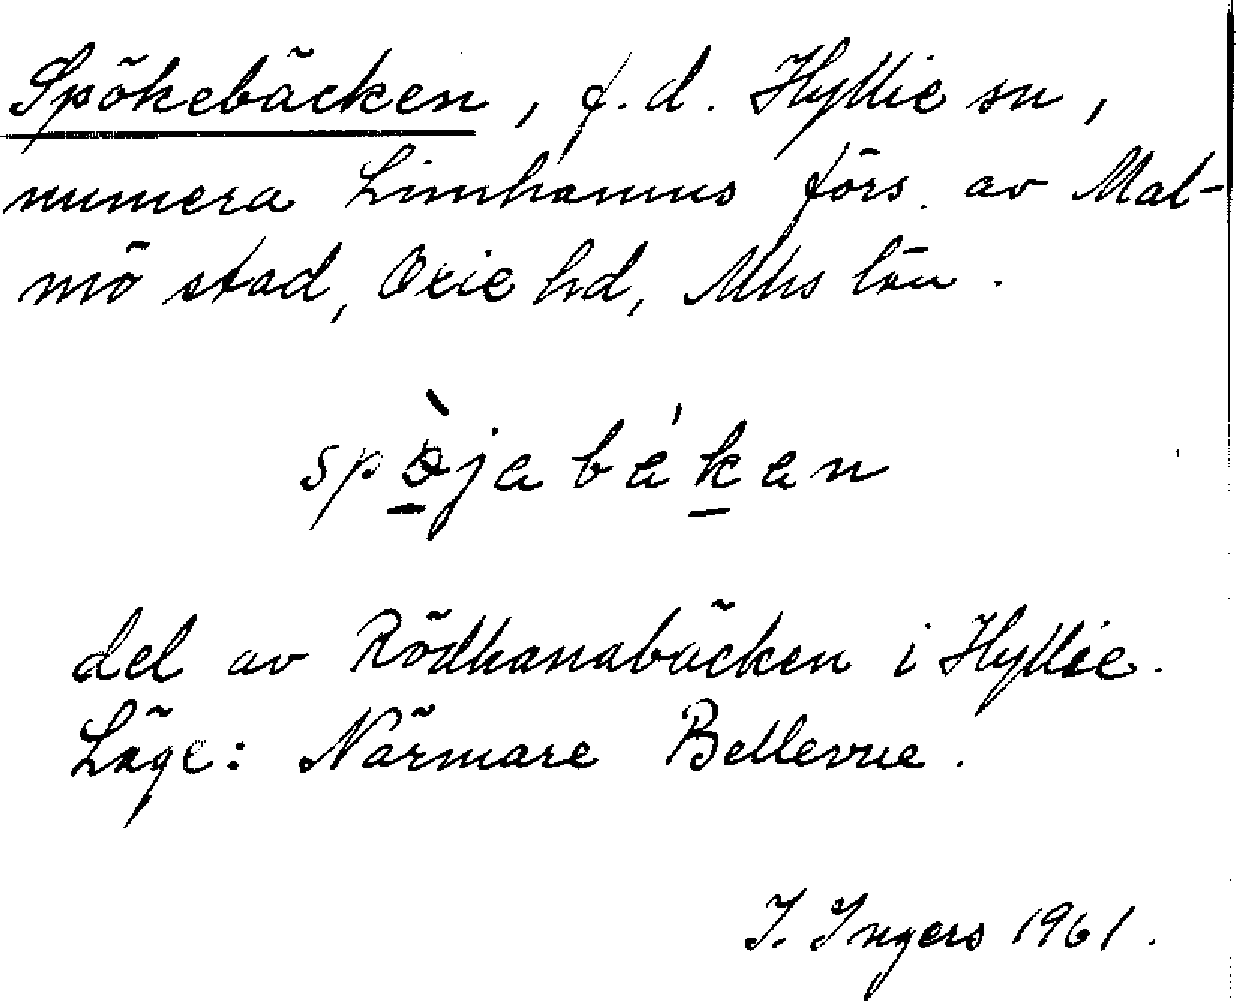 Spökebäcken, f.d. Hyllie sn,
numera Limhamns förs. av Mal-
mö stad, Oxie hd, Mhs län.
del av Rödhanabäcken i Hyllie.
Läge: Närmare Bellevue.
I. Ingers 1961.